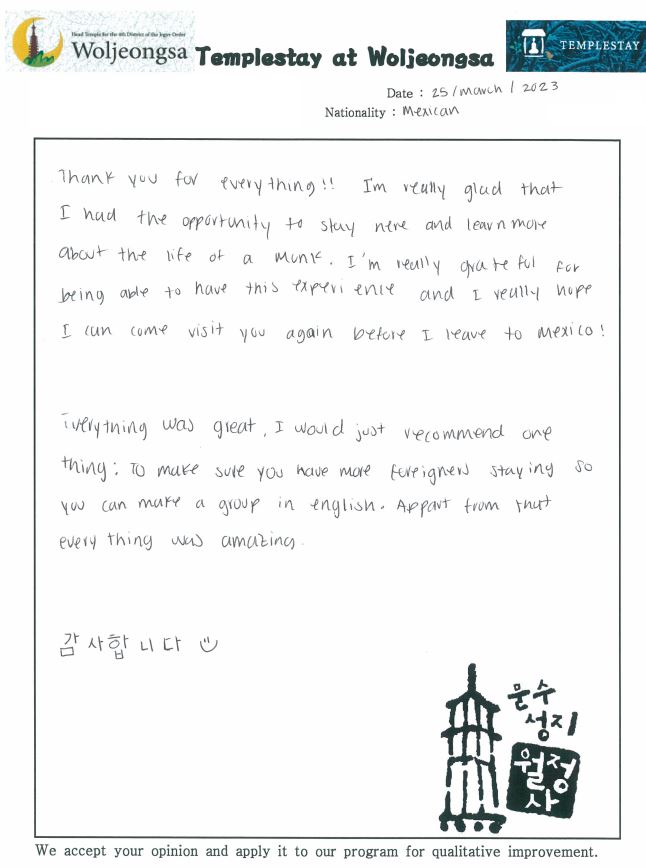 Head Temple for the 4th District of the Jogye Order
Woljeongsa
Templestay at Woljeongsa
TEMPLESTAY
Date : 25/march/2023
Nationality : Mexican
Thank you for everything!! I'm really glad that
I had the opportunity to stay here and learn more
about the life of a monk. I'm really grateful for
being able to have this experience and I really hope
I can come visit you again before I leave to mexico!
Everything was great, I would just recommend one
thing: To make sure you have more foreigners staying so
you can make a group in english. Appart from that
everything was amazing.
감사합니다
문수
성지
월정
사
We accept your opinion and apply it to our program for qualitative improvement.